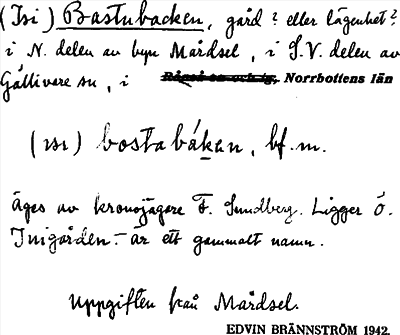 (Isi) Bastubacken, gård? eller lägenhet?
i N. delen av byn Mårdsel, i S.V. delen av
Gällivare sn, i Norrbottens län
(ısı) bostabákan, bf. m.
äges av kronojägare F. Sundberg. Ligger Ö.
Inigården. – är ett gammalt namn.
Uppgiften från Mårdsel.
EDVIN BRÄNNSTRÖM 1942.